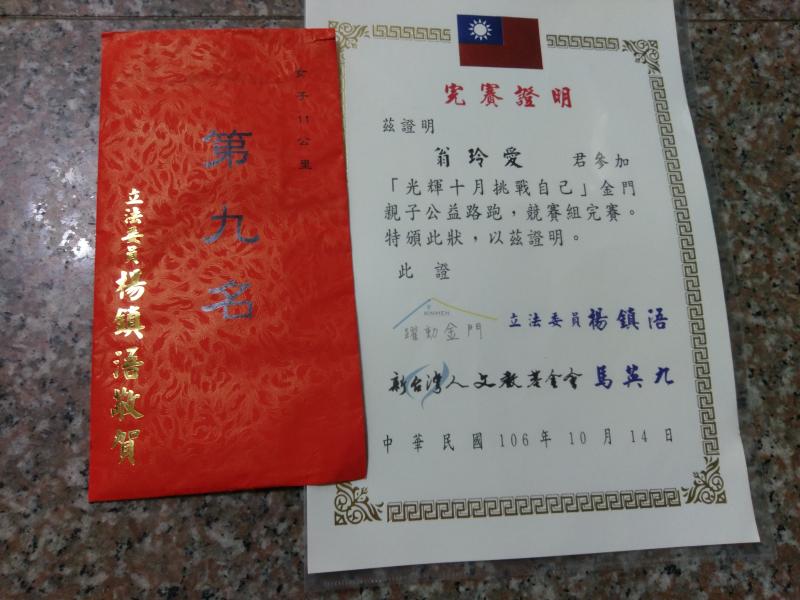 女子11公里
第九名
立法委員楊鎮浯敬賀
完賽證明
茲證明
翁玲愛 君參加
「光輝十月挑戰自己」金門
親子公益路跑，競賽組完賽。
特頒此狀，以茲證明。
此 證
KINMEN
躍動金門
立法委員楊鎮浯
新台灣人文教基金會 馬英九
中華民國 106 年 10 月 14 日